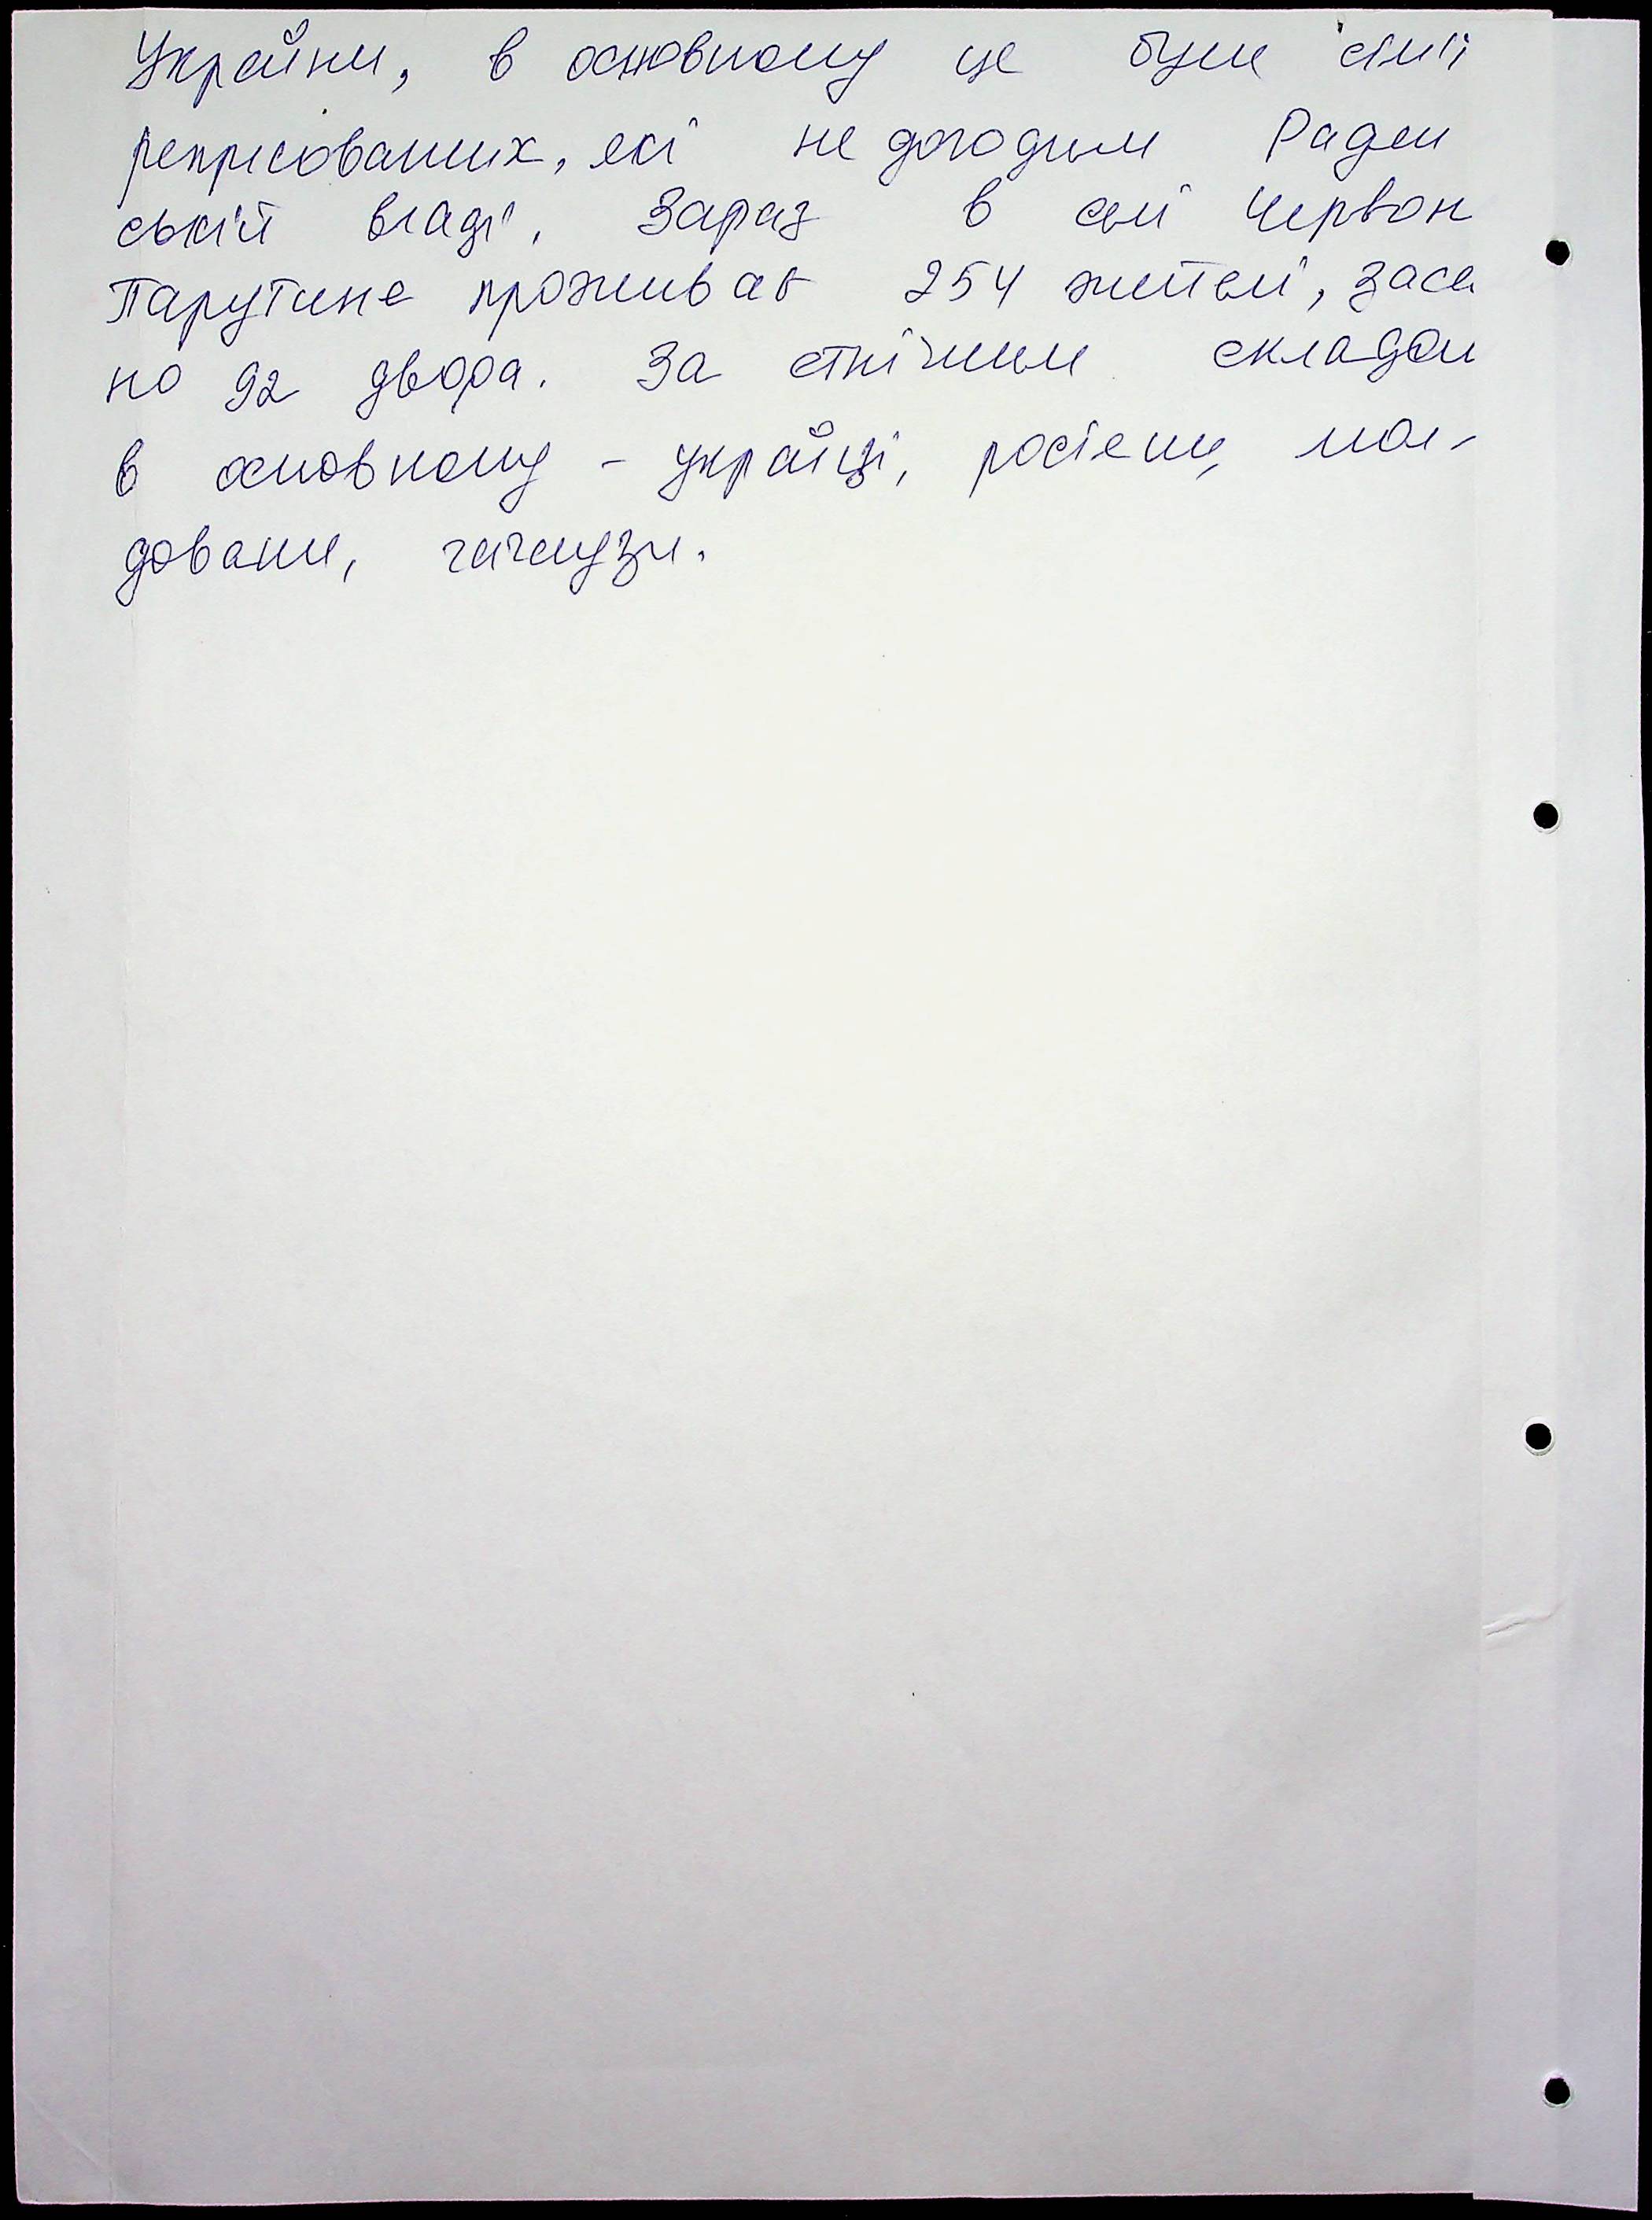 України, в основному це були сім'ї
репресованих, які не догодили Радян
ській владі. Зараз в селі Червон
Парутине проживає 254 жителі, засе
но 92 двора. За етнічним складом
в основному - українці, росіяни, мол-
довани, гагаузи.